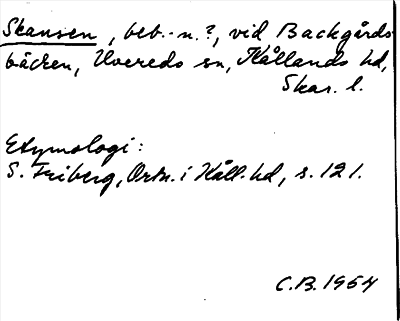 Skansen, beb.-n.?, vid Backgårds
bäcken, Uvereds sn, Kållands hd,
Skar. l.
Etymologi:
S. Friberg, Ortn. i Kåll. hd, s. 121.
C.B. 1954